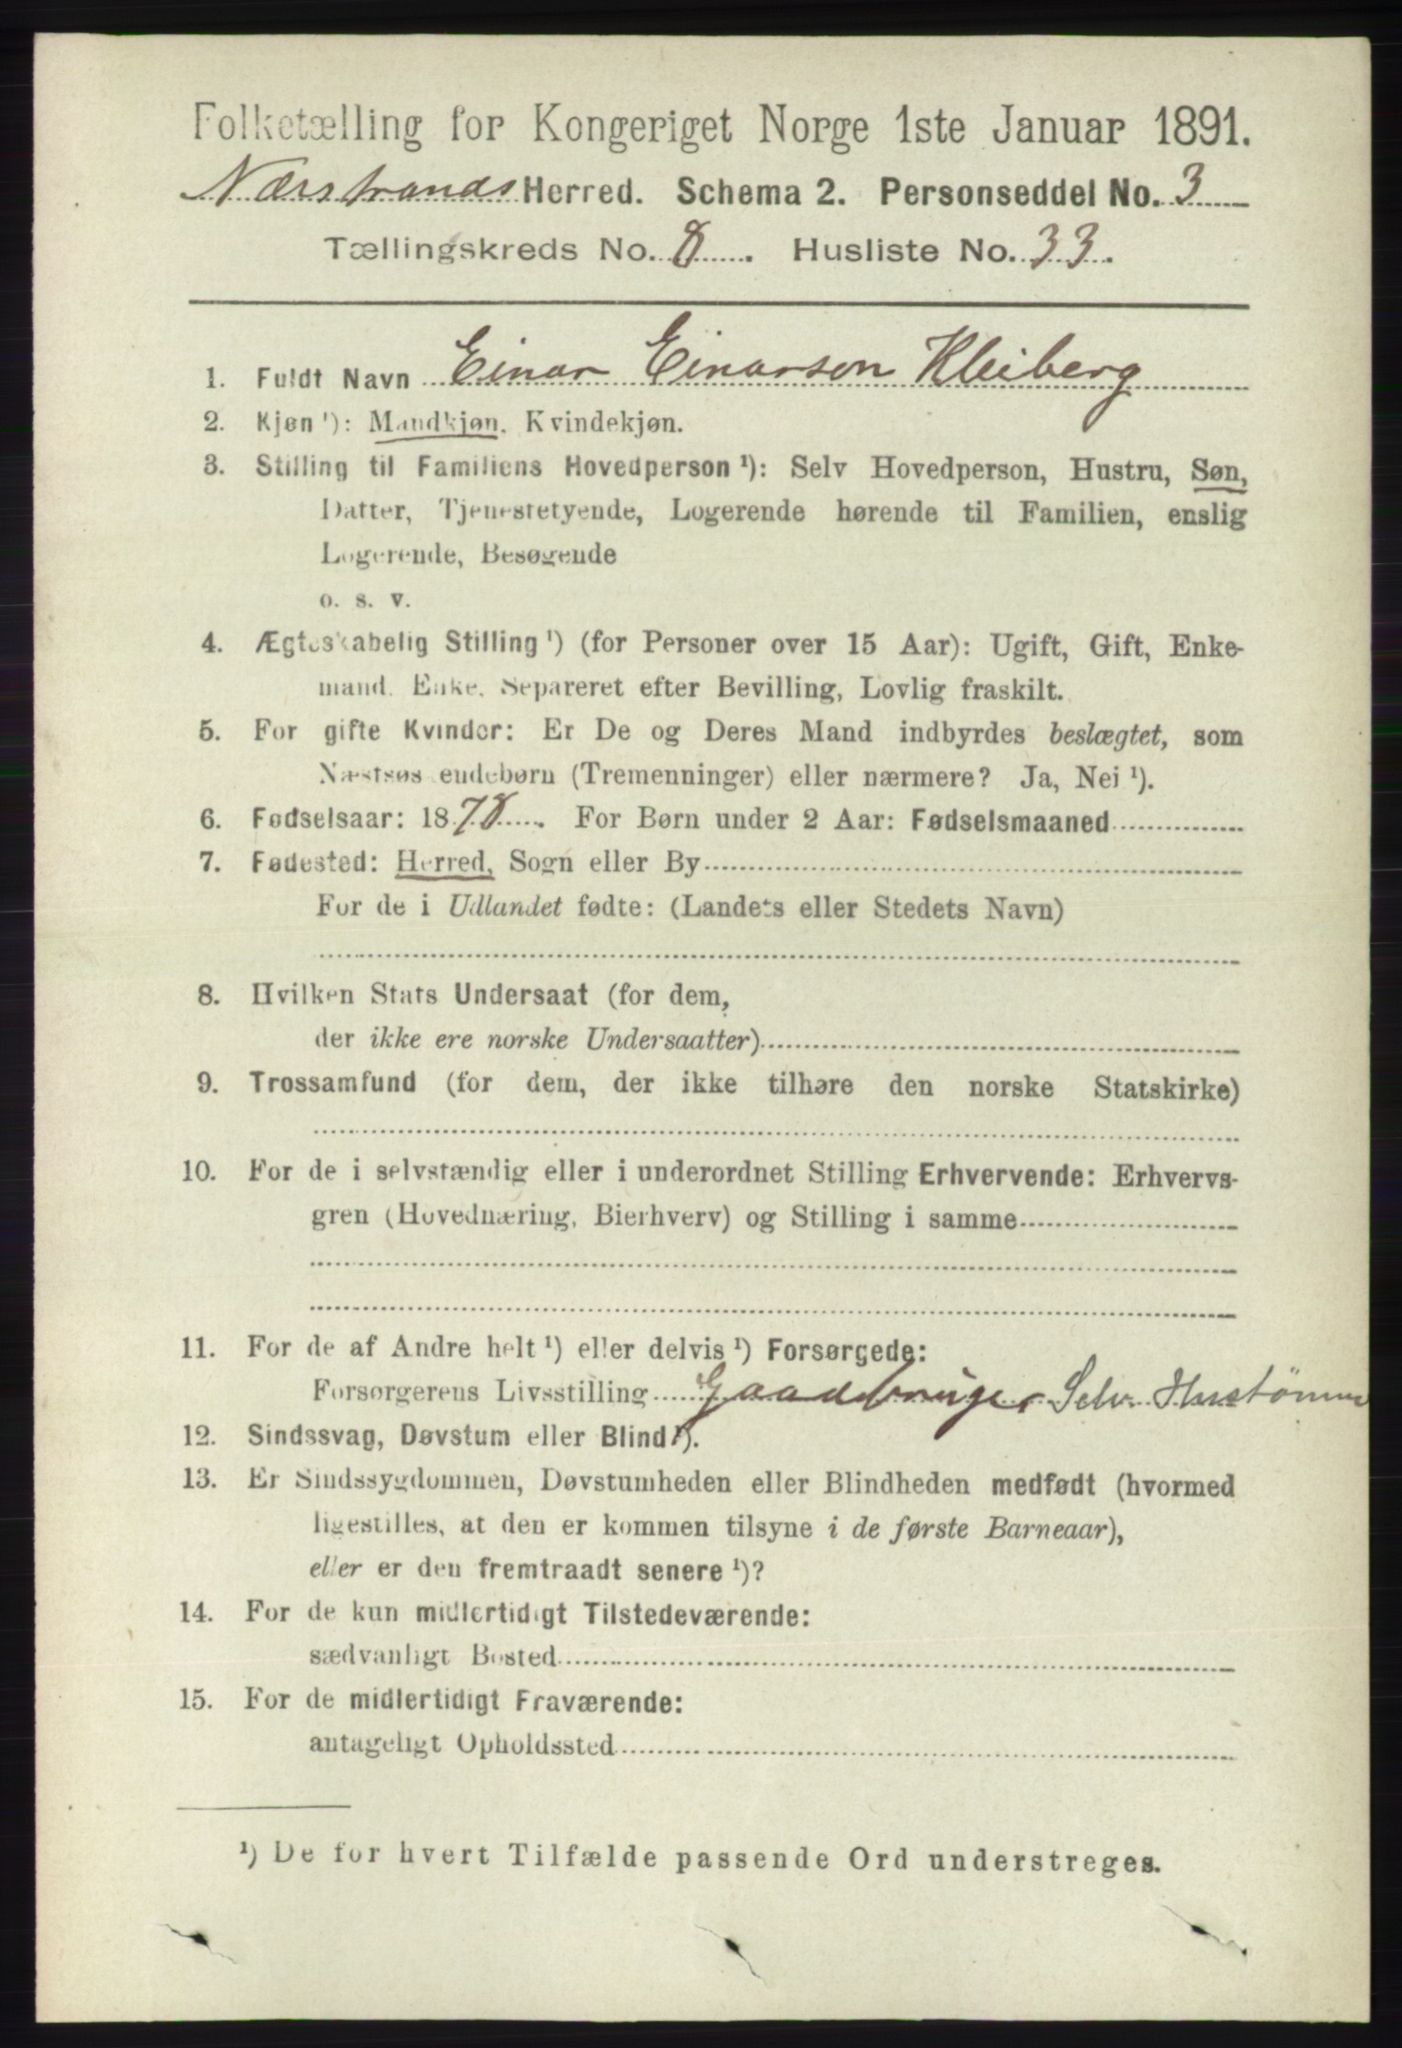 Folketælling for Kongeriget Norge 1ste Januar 1891.
Nærstrands Herred. Schema 2. Personseddel No. 3
Tællingskreds No. 8. Husliste No. 33.
1. Fuldt Navn Einar Einarson Kleiberg
2. Kjøn ¹): Mandkjøn. Kvindekjøn.
3. Stilling til Familiens Hovedperson ¹): Selv Hovedperson, Hustru, Søn,
Datter, Tjenestetyende, Logerende hørende til Familien, enslig
Logerende, Besøgende
o. s. v.
4. Ægteskabelig Stilling ¹) (for Personer over 15 Aar): Ugift, Gift, Enke-
mand, Enke, Separeret efter Bevilling, Lovlig fraskilt.
5. For gifte Kvinder: Er De og Deres Mand indbyrdes beslægtet, som
Næstsøskendebørn (Tremenninger) eller nærmere? Ja, Nei ¹).
6. Fødselsaar: 1878. For Børn under 2 Aar: Fødselsmaaned
7. Fødested: Herred, Sogn eller By
For de i Udlandet fødte: (Landets eller Stedets Navn)
8. Hvilken Stats Undersaat (for dem,
der ikke ere norske Undersaatter)
9. Trossamfund (for dem, der ikke tilhøre den norske Statskirke)
10. For de i selvstændig eller i underordnet Stilling Erhvervende: Erhvervs-
gren (Hovednæring, Bierhverv) og Stilling i samme
11. For de af Andre helt ¹) eller delvis ¹) Forsørgede:
Forsørgerens Livsstilling Gaardbruger Selv.
12. Sindssvag, Døvstum eller Blind ¹).
13. Er Sindssygdommen, Døvstumheden eller Blindheden medfødt (hvormed
ligestilles, at den er kommen tilsyne i de første Barneaar),
eller er den fremtraadt senere ¹)?
14. For de kun midlertidigt Tilstedeværende:
sædvanligt Bosted
15. For de midlertidigt Fraværende:
antageligt Opholdssted
¹) De for hvert Tilfælde passende Ord understreges.